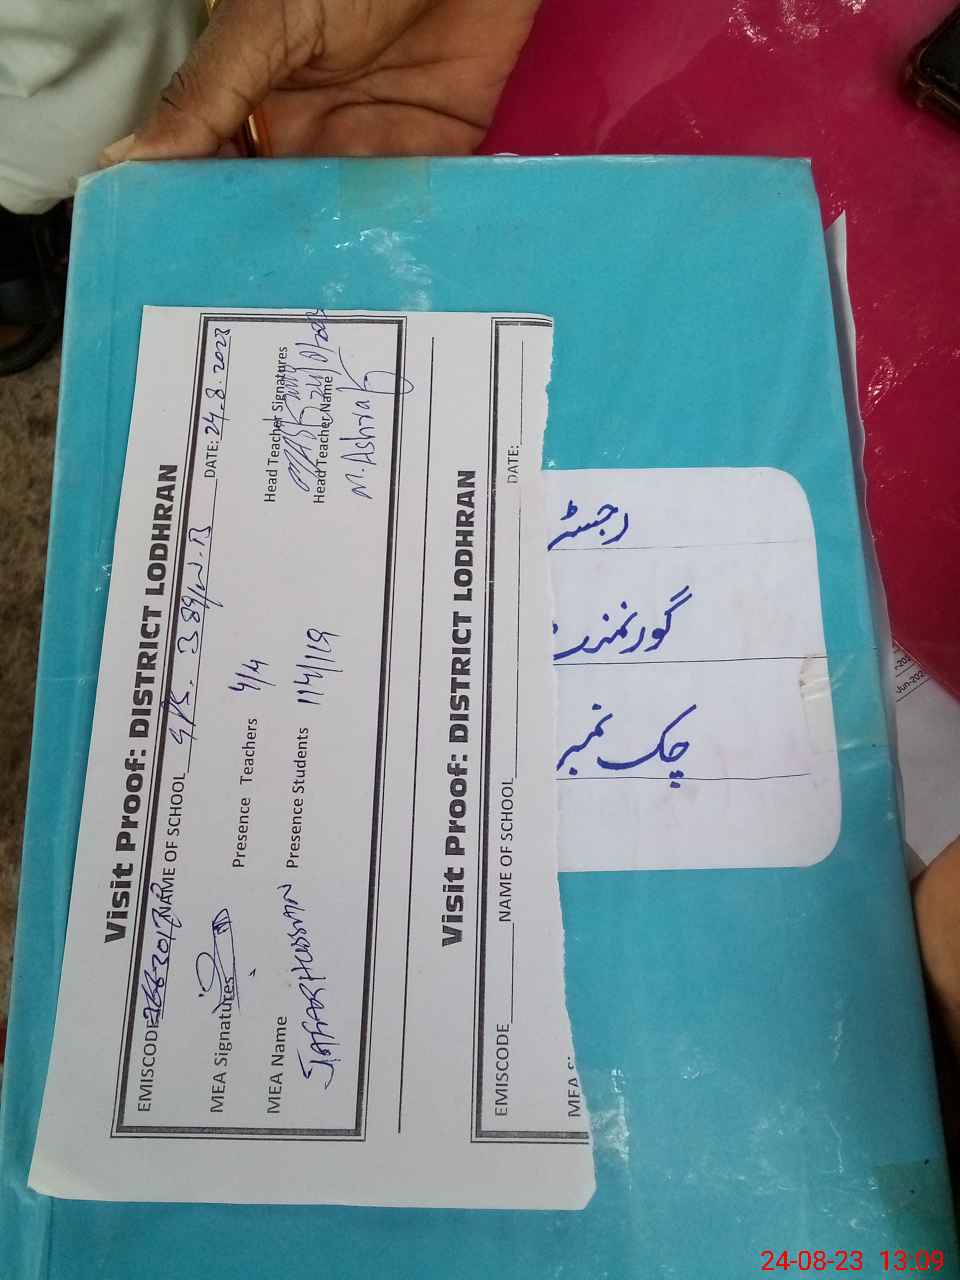 Visit Proof: DISTRICT LODHRAN
EMISCODE NAME OF SCHOOL GPS. 389/W.B DATE: 24.8.2023
MEA Signatures Presence Teachers 4/4 Head Teacher Signatures
MEA Name Presence Students 114/119 Head Teacher Name
JAFAR HUSSAIN M. Ashraf
Visit Proof: DISTRICT LODHRAN
EMISCODE NAME OF SCHOOL DATE:
MEA
رجسٹر
گورنمنٹ
چک نمبر
Jun-202
24-08-23 13:09